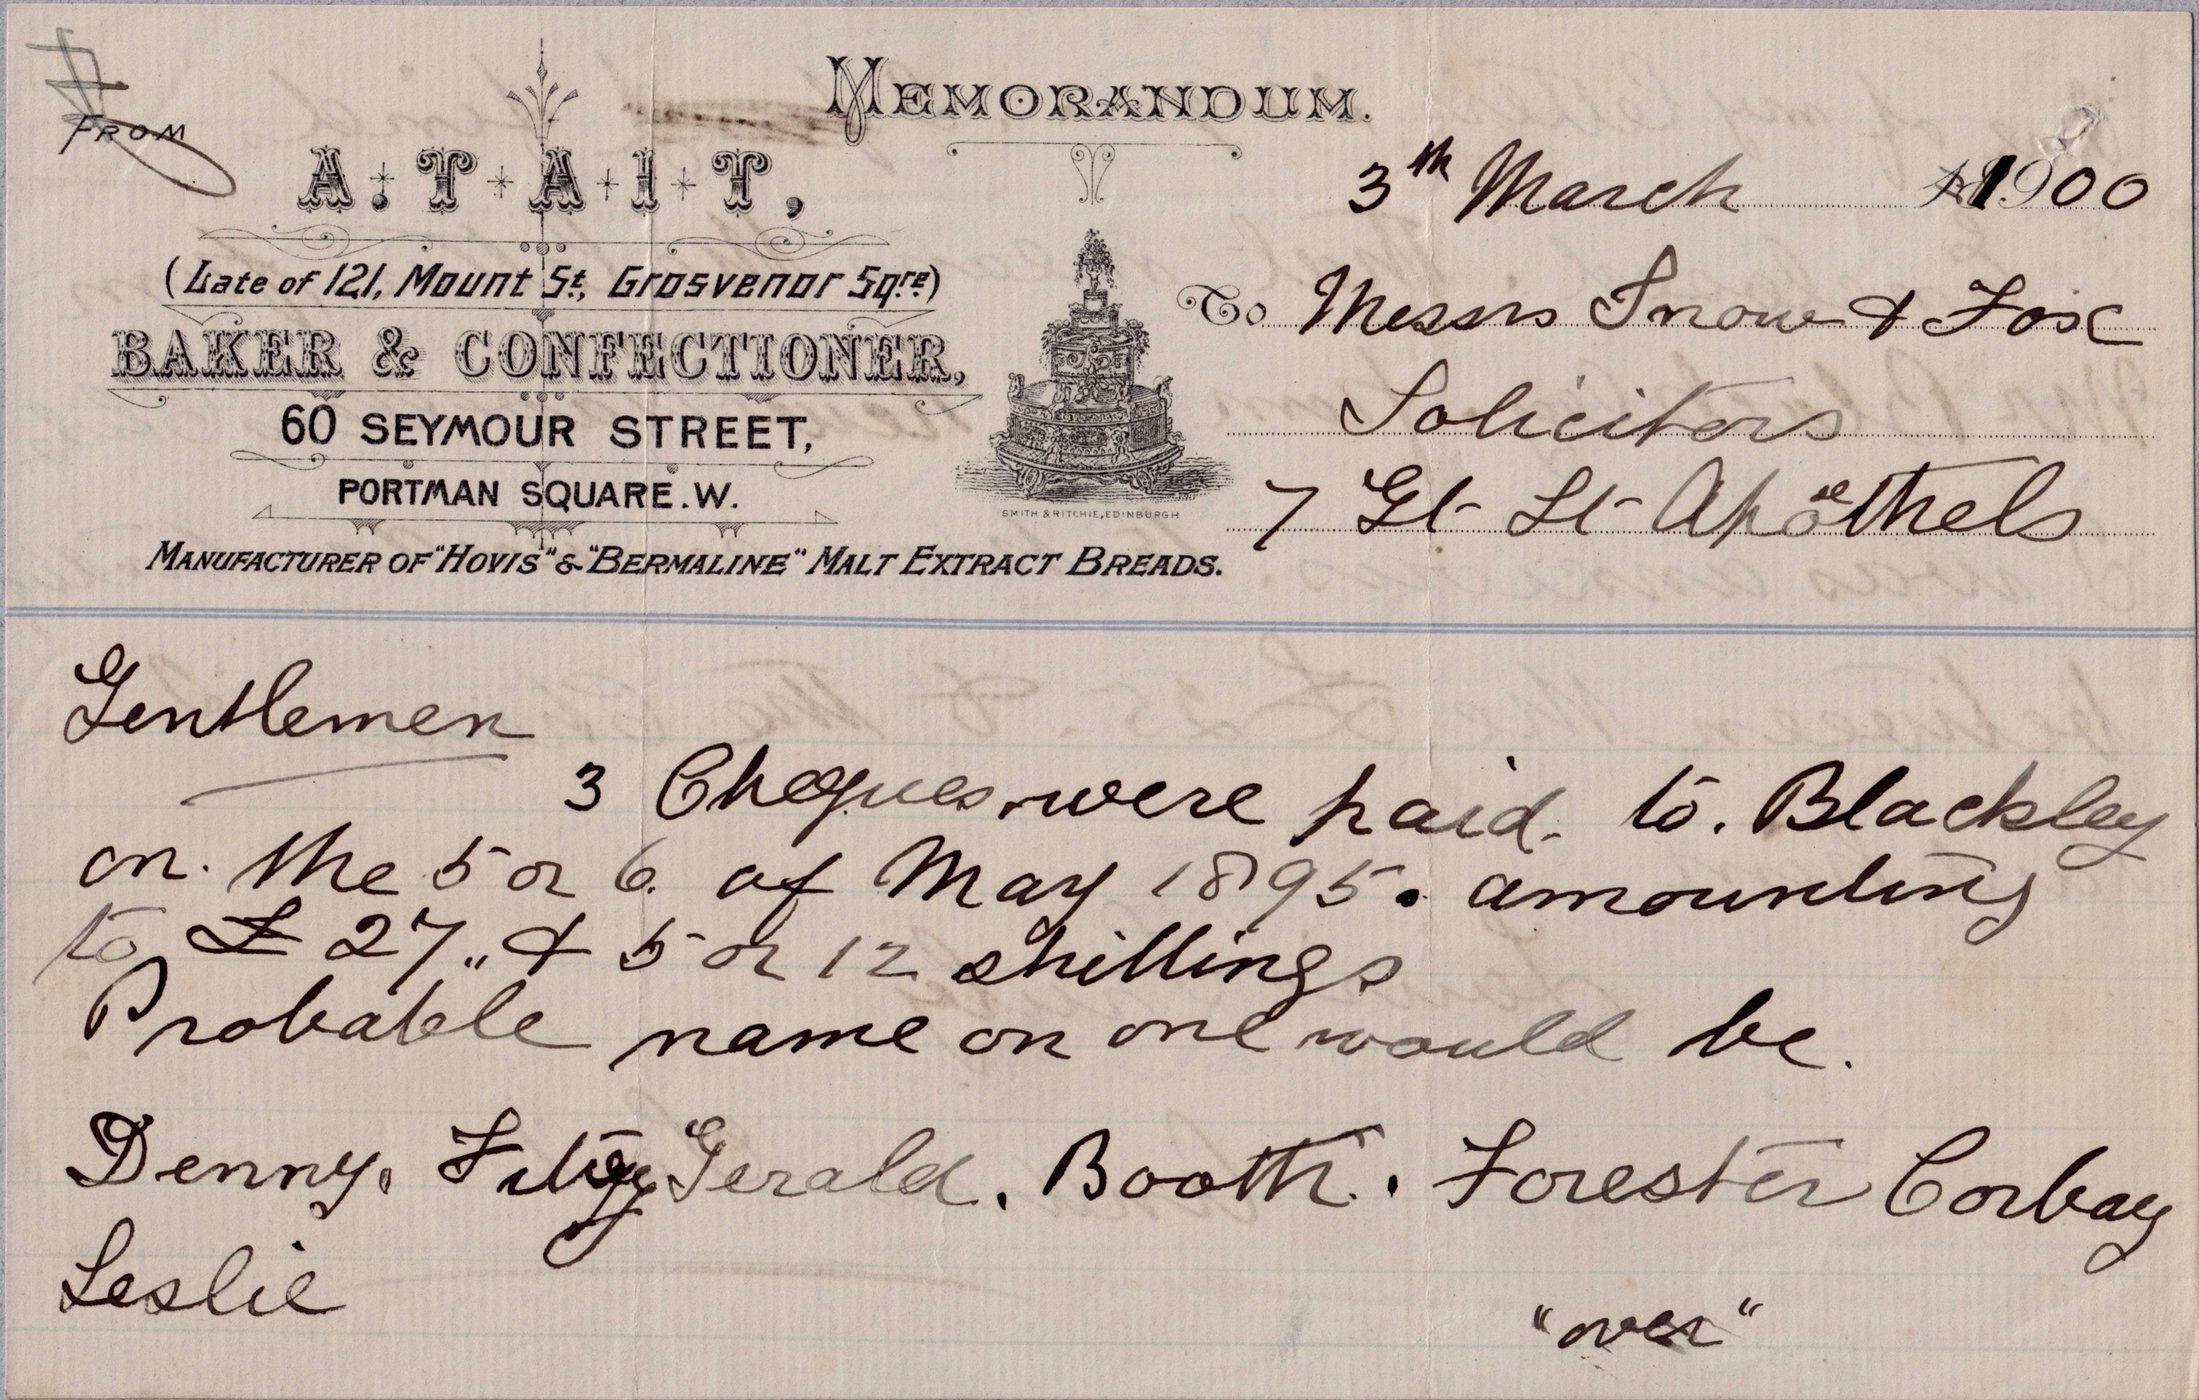 MEMORANDUM.
FROM
A. TAIT,
(Late of 121, Mount St, Grosvenor Sqre)
BAKER & CONFECTIONER,
60 SEYMOUR STREET,
PORTMAN SQUARE. W.
MANUFACTURER OF "HOVIS" & "BERMALINE" MALT EXTRACT BREADS.
SMITH & RITCHIE, EDINBURGH
3th March 1900
To Messrs Snow & Fox
Solicitors
7 Gt St
Gentlemen
3 Cheques were paid to. Blackley
on. the 5 or 6. of May 1895. amounting
to £ 27,, & 5 or 12 shillings
Probable name on one would be.
Denny. Fitz Gerald. Booth. Forester Corbay
Leslie
"over"